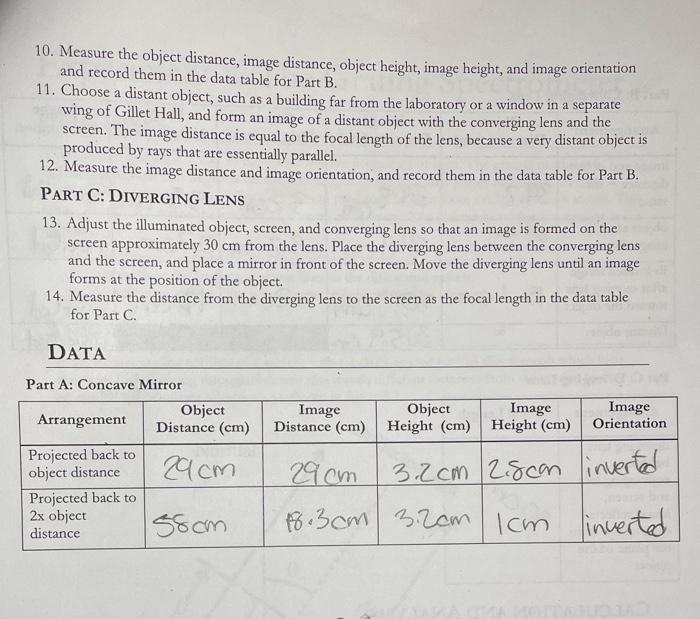 10. Measure the object distance, image distance, object height, image height, and image orientation
and record them in the data table for Part B.
11. Choose a distant object, such as a building far from the laboratory or a window in a separate
wing of Gillet Hall, and form an image of a distant object with the converging lens and the
screen. The image distance is equal to the focal length of the lens, because a very distant object is
produced by rays that are essentially parallel.
12. Measure the image distance and image orientation, and record them in the data table for Part B.
PART C: DIVERGING LENS
13. Adjust the illuminated object, screen, and converging lens so that an image is formed on the
screen approximately 30 cm from the lens. Place the diverging lens between the converging lens
and the screen, and place a mirror in front of the screen. Move the diverging lens until an image
forms at the position of the object.
14. Measure the distance from the diverging lens to the screen as the focal length in the data table
for Part C.
DATA
Part A: Concave Mirror
Arrangement Object Distance (cm) Image Distance (cm) Object Height (cm) Image Height (cm) Image Orientation
Projected back to object distance 29cm 29cm 3.2cm 2.8cm inverted
Projected back to 2x object distance 58cm 18.3cm 3.2cm 1cm inverted